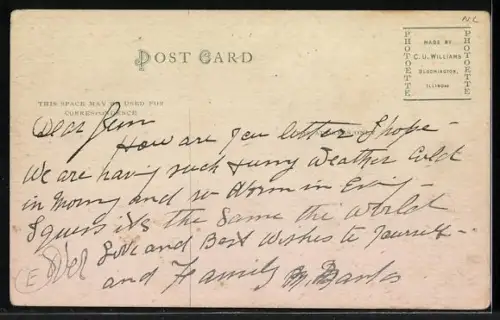 N.C.
POST CARD
PHOTOETTE
MADE BY
C. U. WILLIAMS
BLOOMINGTON,
ILLINOIS
PHOTOETTE
THIS SPACE MAY BE USED FOR
CORRESPONDENCE
Dear
How are you better I hope -
We are having such Funny Weather Cold
in Morng and so Worm in Eving -
I guess its the Same the World
Over Love and Best Wishes to Yourself -
and Family M. Banks
E